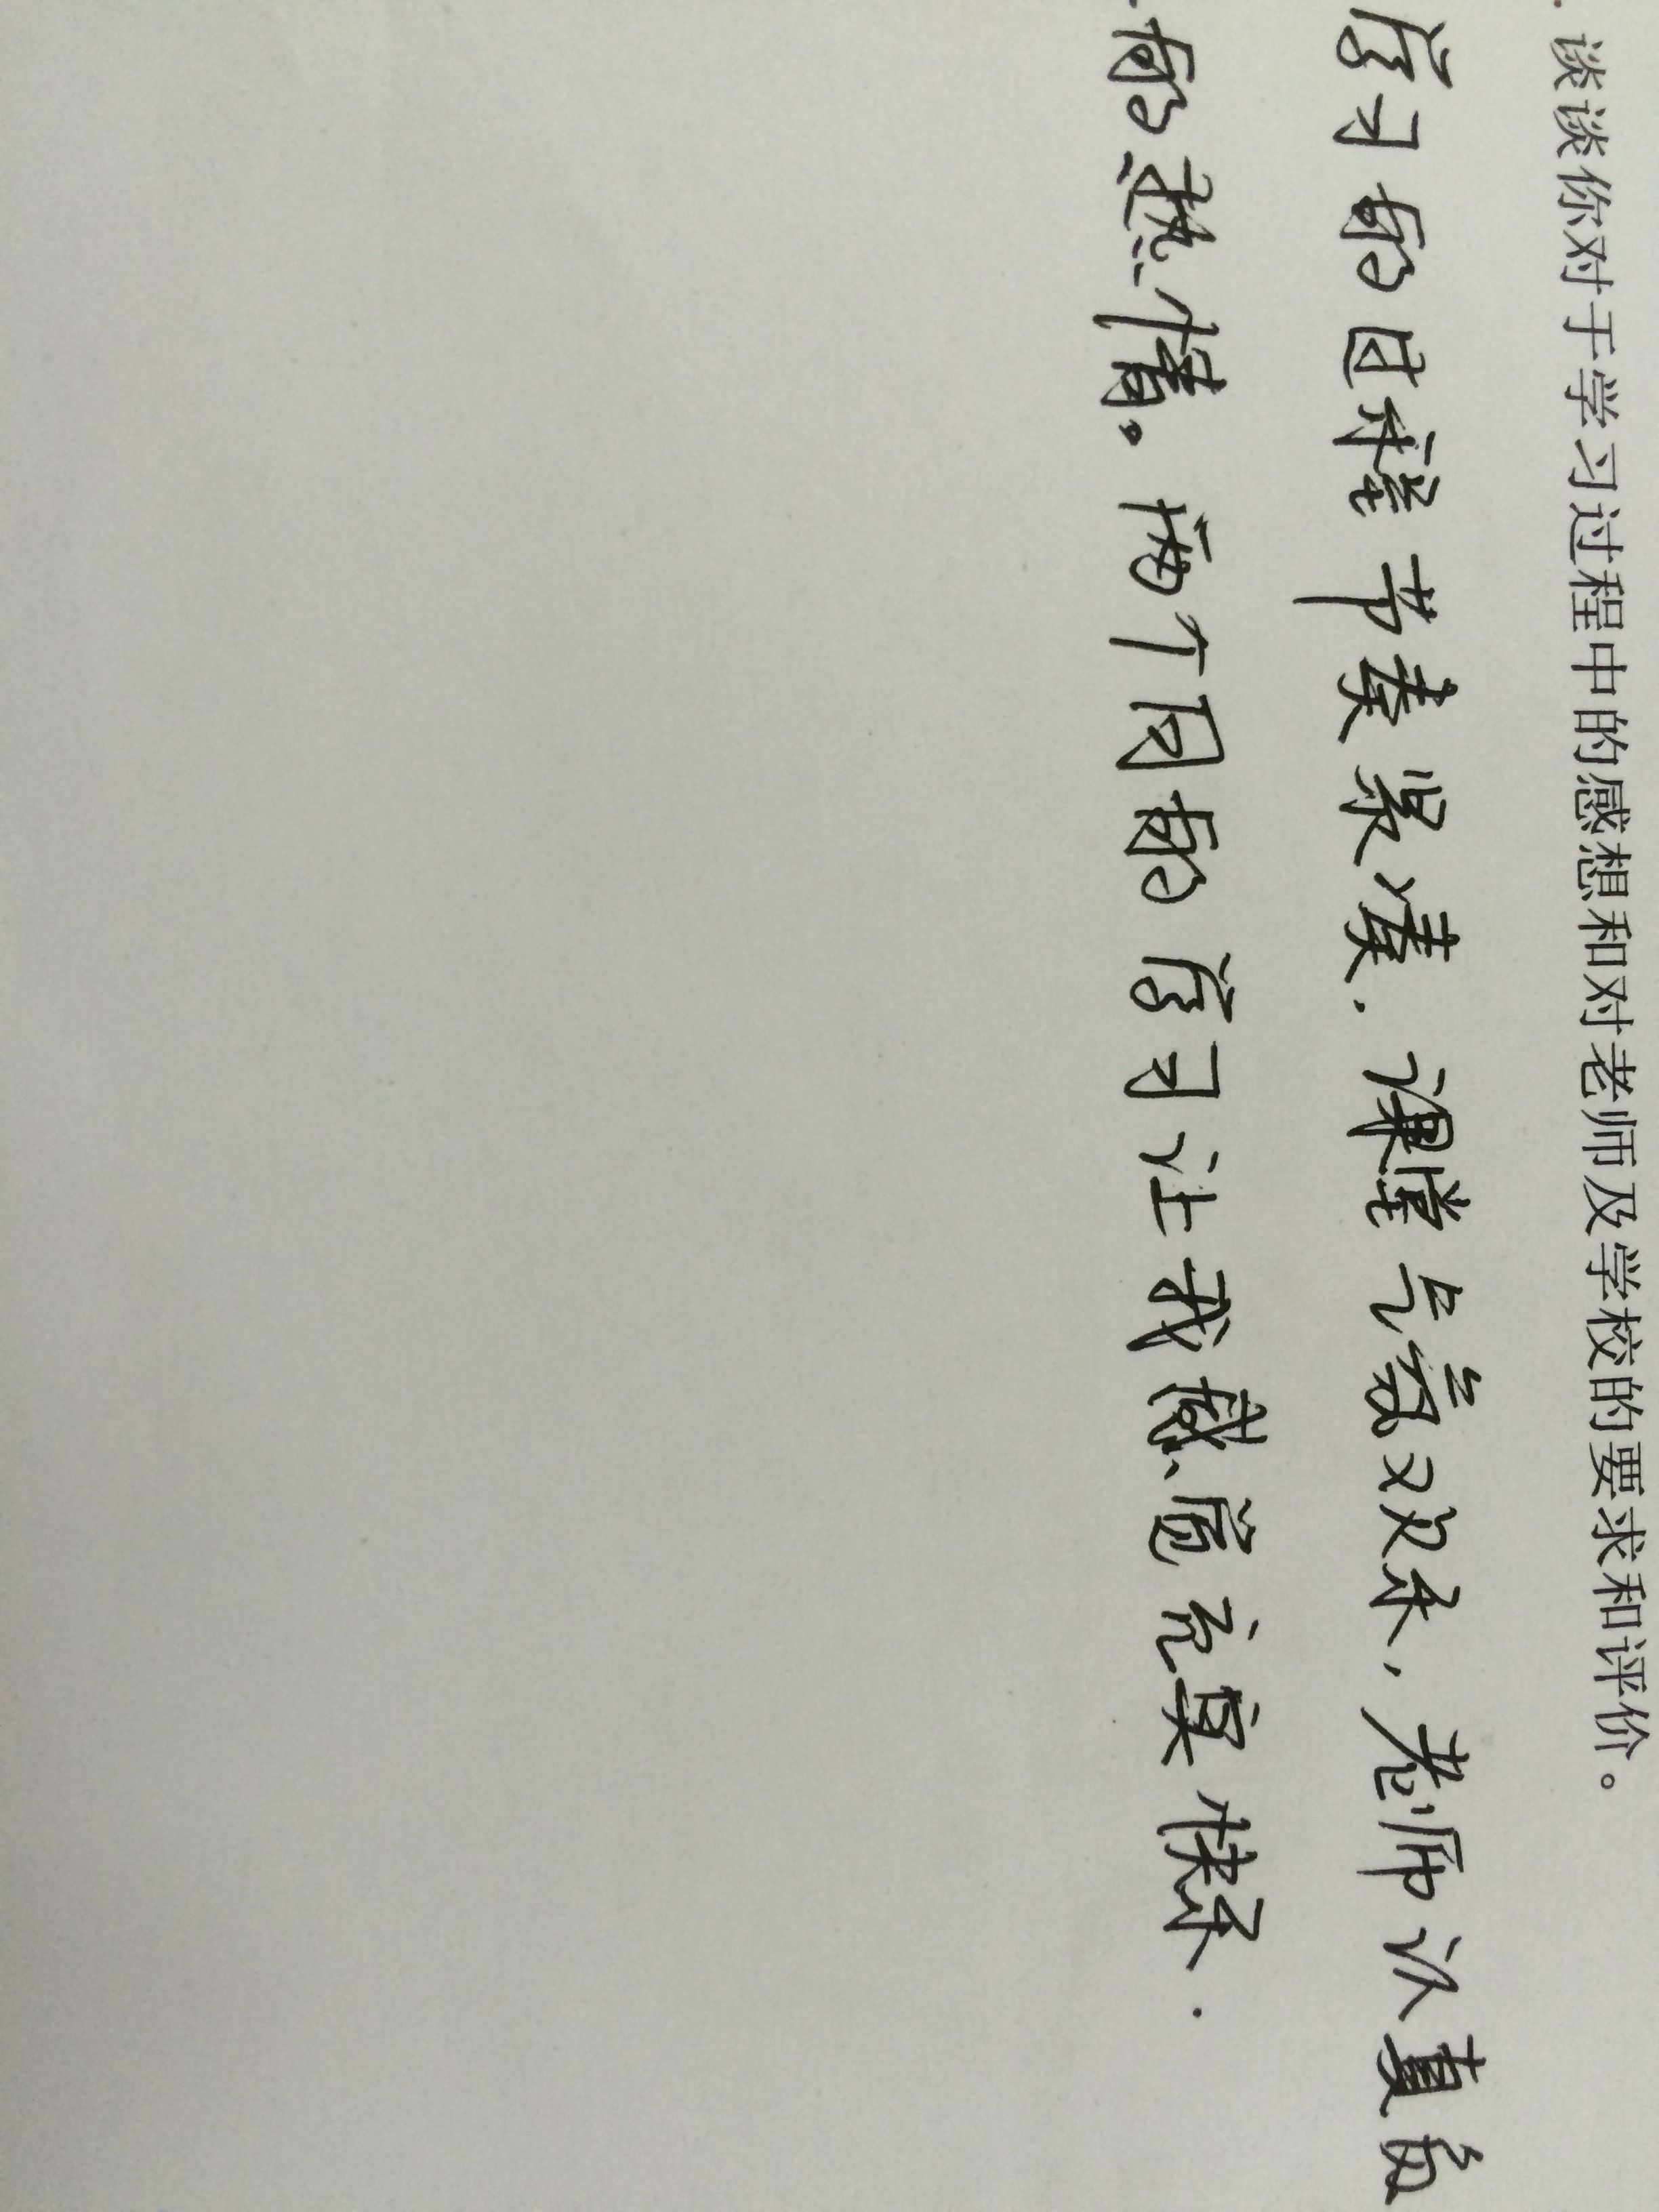 . 谈谈你对于学习过程中的感想和对老师及学校的要求和评价。
学习的过程节奏紧凑. 课堂气氛欢乐, 老师认真负
的热情。两个月的学习让我感觉充实快乐.